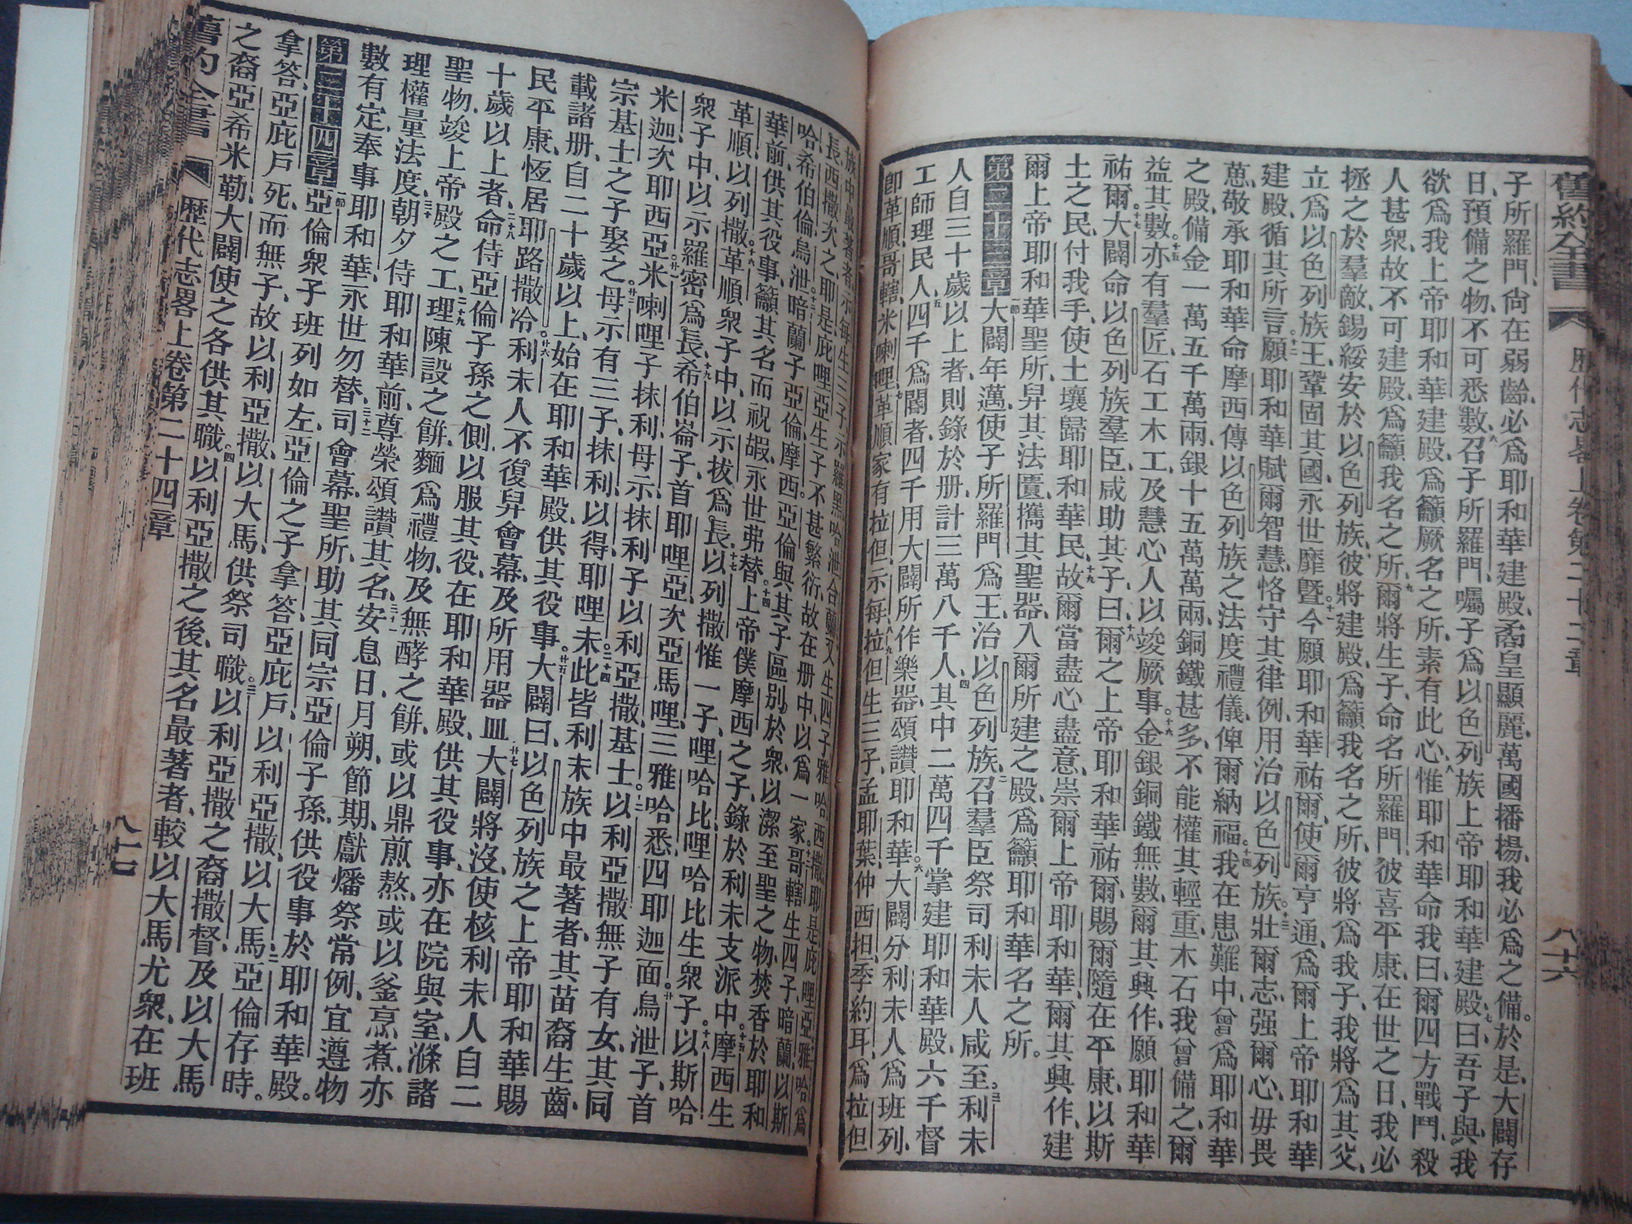 舊約全書 歷代志畧上卷第二十二章 八十六
子所羅門尙在弱齡必爲耶和華建殿矞皇顯麗萬國播揚我必爲之備於是大闢存
日預備之物不可悉數召子所羅門囑子爲以色列族上帝耶和華建殿曰吾子與我
欲爲我上帝耶和華建殿爲籲厥名之所素有此心惟耶和華命我曰爾四方戰鬥殺
人甚衆故不可建殿爲籲我名之所爾將生子命名所羅門彼喜平康在世之日我必
拯之於羣敵錫綏安於以色列族彼將建殿爲籲我名之所彼將爲我子我將爲其父
立爲以色列族王鞏固其國永世靡曁今願耶和華祐爾使爾亨通爲爾上帝耶和華
建殿循其所言願耶和華賦爾智慧恪守其律例用治以色列族壯爾志强爾心毋畏
葸敬承耶和華命摩西傳以色列族之法度禮儀俾爾納福我在患難中曾爲耶和華
之殿備金一萬五千萬兩銀十五萬萬兩銅鐵甚多不能權其輕重木石我曾備之爾
益其數亦有羣匠石工木工及慧心人以竣厥事金銀銅鐵無數爾其興作願耶和華
祐爾大闢命以色列族羣臣咸助其子曰爾之上帝耶和華祐爾賜爾隨在平康以斯
土之民付我手使土壤歸耶和華民故爾當盡心盡意崇爾上帝耶和華爾其興作建
爾上帝耶和華聖所舁其法匱攜其聖器入爾所建之殿爲籲耶和華名之所
第二十三章 大闢年邁使子所羅門爲王治以色列族召羣臣祭司利未人咸至利未
人自三十歲以上者則錄於册計三萬八千人其中二萬四千掌建耶和華殿六千督
工師理民人四千爲閽者四千用大闢所作樂器頌讚耶和華大闢分利未人爲班列
卽革順哥轄米喇哩革順家有拉但示每拉但生三子孟耶葉仲西担季約耳爲拉但
族中最著者示每生三子示羅黑哈泄哈蘭又生四子雅哈西撒耶是庇哩亞雅哈爲
長西撒次之耶是庇哩亞生子不甚繁衍故在册中以爲一家哥轄生四子暗蘭以斯
哈希伯倫烏泄暗蘭子亞倫摩西亞倫與其子區別於衆以潔至聖之物焚香於耶和
華前供其役事籲其名而祝嘏永世弗替上帝僕摩西之子錄於利未支派中摩西生
革順以列撒革順衆子中以示拔爲長以列撒惟一子哩哈比哩哈比生衆子以斯哈
衆子中以示羅密爲長希伯崙子首耶哩亞次亞馬哩三雅哈悉四耶迦面烏泄子首
米迦次耶西亞米喇哩子抹利母示抹利子以利亞撒基士以利亞撒無子有女其同
宗基士之子娶之母示有三子抹利以得耶哩未此皆利未族中最著者其苗裔生齒
載諸册自二十歲以上始在耶和華殿供其役事大闢曰以色列族之上帝耶和華賜
民平康恆居耶路撒冷利未人不復舁會幕及所用器皿大闢將沒使核利未人自二
十歲以上者命侍亞倫子孫之側以服其役在耶和華殿供其役事亦在院與室滌諸
聖物竣上帝殿之工理陳設之餅麵爲禮物及無酵之餅或以鼎煎熬或以釜烹煮亦
理權量法度朝夕侍耶和華前尊榮頌讚其名安息日月朔節期獻燔祭常例宜遵物
數有定奉事耶和華永世勿替司會幕聖所助其同宗亞倫子孫供役事於耶和華殿
第二十四章 亞倫衆子班列如左亞倫之子拿答亞庇戶以利亞撒以大馬亞倫存時
拿答亞庇戶死而無子故以利亞撒以大馬供祭司職以利亞撒之裔撒督及以大馬
之裔亞希米勒大闢使之各供其職以利亞撒之後其名最著者較以大馬尤衆在班
舊約全書 歷代志畧上卷第二十四章 八十七